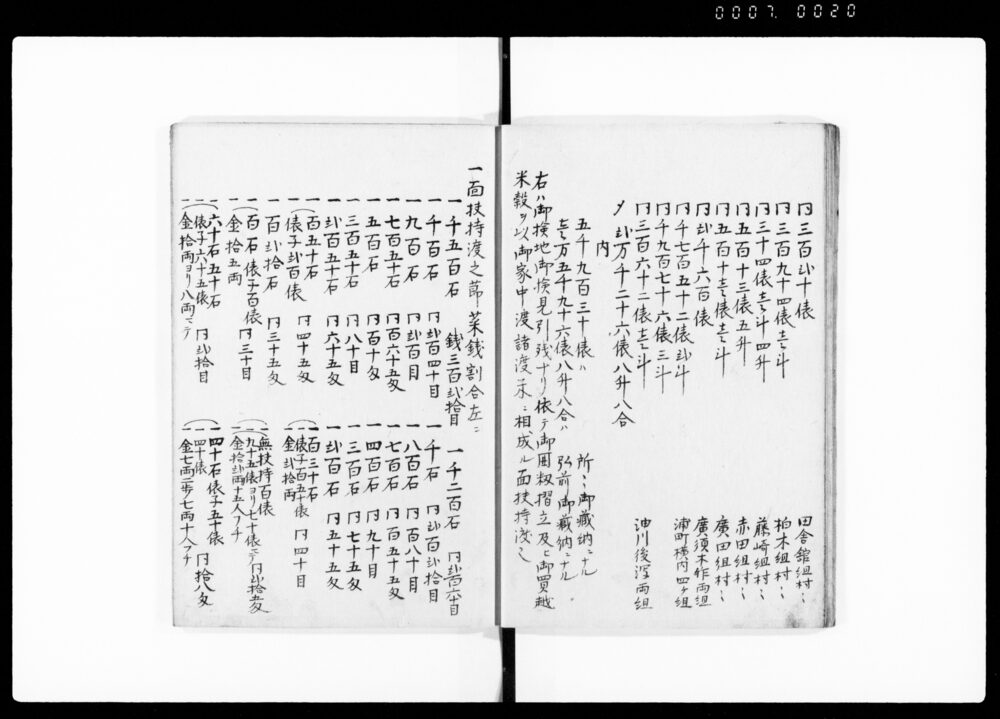 0007. 0020
〃三百弐十俵 田舎館組村〻
〃三百九十四俵壱斗 柏木組村〻
〃三十四俵壱斗四升 藤崎組村〻
〃五百十三俵五升 赤田組村〻
〃五百十壱俵壱斗 廣田組村〻
〃弐千六百俵 廣須木作両組
〃千七百五十二俵弐斗 浦町横内四ケ組
〃千九百七十六俵三斗
〃三百六十二俵壱斗 油川後潟両組
〆弐万千二十六俵八升八合
内
五千九百三十俵ハ 所〻御蔵納ニナル
壱万五千九十六俵八升八合ハ 弘前御蔵納ニナル
右ハ御検地御検見引残ナリ依テ御囲籾摺立及ヒ御買越
米穀ヲ以御家中渡諸渡等ニ相成ル面扶持渡之
一面扶持渡之節菜銭割合左ニ
一千五百石 銭三百弐拾目 一千二百石 〃弐百六十目
一千百石 〃弐百四十目 一千石 〃弐百弐拾目
一九百石 〃弐百目 一八百石 〃百八十目
一七百五十石 〃百六十五匁 一七百石 〃百五十五匁
一五百石 〃百十匁 一四百石 〃九十目
一三百五十石 〃八十目 一三百石 〃七十五匁
一弐百五十石 〃六十五匁 一弐百石 〃五十五匁
一百五十石 一百三十石
一俵子弐百俵 〃四十五匁 一俵子百五十俵 〃四十目
一百弐拾石 〃三十五匁 一金弐拾両
一百石俵子百俵 〃三十目 一無扶持百俵
一金拾五両 一九十五俵ヨリ七十俵ニテ 〃弐拾五匁
一金拾弐両十五人フチ
一六十石五十石 一四十石俵子五十俵
一俵子六十五俵 〃弐拾目 一四十俵 〃拾八匁
一金拾両ヨリ八両ニテ 一金七両二歩七両十人フチ